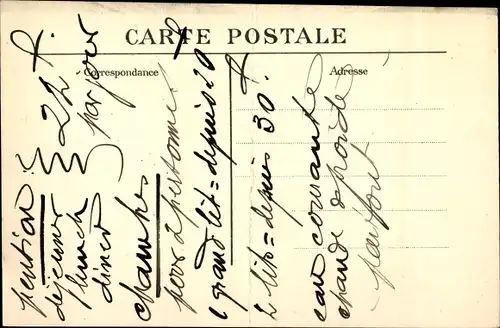 CARTE POSTALE
Correspondance
Adresse
pention
dejeuner
lunch
diner
22 f.
par jour
chambres
pour 2 personnes
1 grand lit = depuis 20 f
2 lits = depuis 30 f.
eau courante
chaude & froide
partout